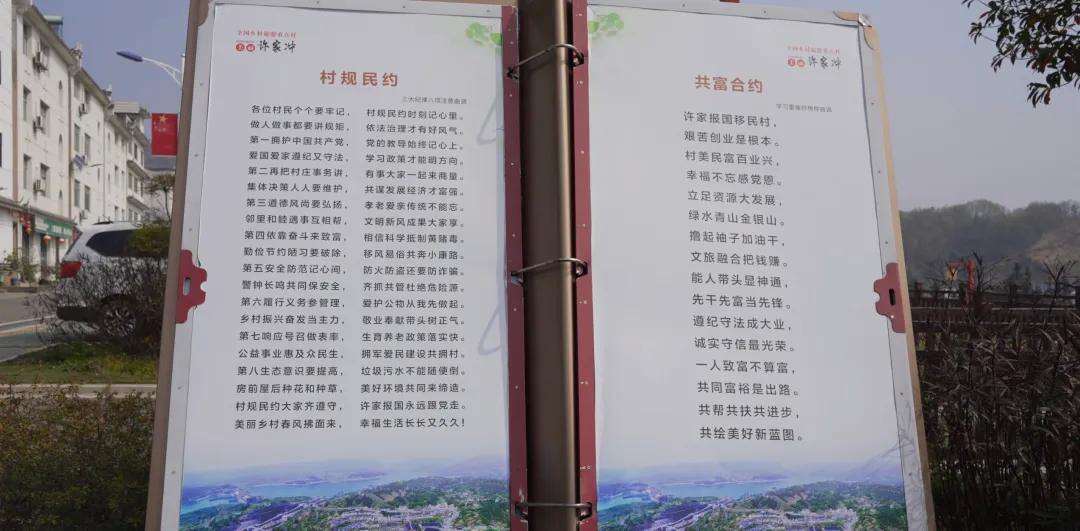 全国乡村旅游重点村
许家冲
村规民约
三大纪律八项注意曲调
各位村民个个要牢记, 村规民约时刻记心里。
做人做事都要讲规矩, 依法治理才有好风气。
第一拥护中国共产党, 党的教导始终记心上。
爱国爱家遵纪又守法, 学习政策才能明方向。
第二再把村庄事务讲, 有事大家一起来商量。
集体决策人人要维护, 共谋发展经济才富强。
第三道德风尚要弘扬, 孝老爱亲传统不能忘。
邻里和睦遇事互相帮, 文明新风成果大家享。
第四依靠奋斗来致富, 相信科学抵制黄赌毒。
勤俭节约陋习要破除, 移风易俗共奔小康路。
第五安全防范记心间, 防火防盗还要防诈骗。
警钟长鸣共同保安全, 齐抓共管杜绝危险源。
第六履行义务参管理, 爱护公物从我先做起。
乡村振兴奋发当主力, 敬业奉献带头树正气。
第七响应号召做表率, 生育养老政策落实快。
公益事业惠及众民生, 拥军爱民建设共拥村。
第八生态意识要提高, 垃圾污水不能随便倒。
房前屋后种花和种草, 美好环境共同来缔造。
村规民约大家齐遵守, 许家报国永远跟党走。
美丽乡村春风拂面来, 幸福生活长长又久久!
全国乡村旅游重点村
许家冲
共富合约
学习雷锋好榜样曲调
许家报国移民村,
艰苦创业是根本。
村美民富百业兴,
幸福不忘感党恩。
立足资源大发展,
绿水青山金银山。
撸起袖子加油干,
文旅融合把钱赚。
能人带头显神通,
先干先富当先锋。
遵纪守法成大业,
诚实守信最光荣。
一人致富不算富,
共同富裕是出路。
共帮共扶共进步,
共绘美好新蓝图。